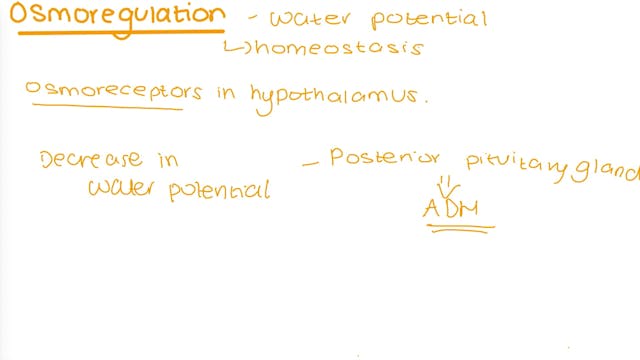 Osmoregulation - water potential
↳ homeostasis
Osmoreceptors in hypothalamus.
Decrease in - Posterior pituitary gland
water potential
ADH